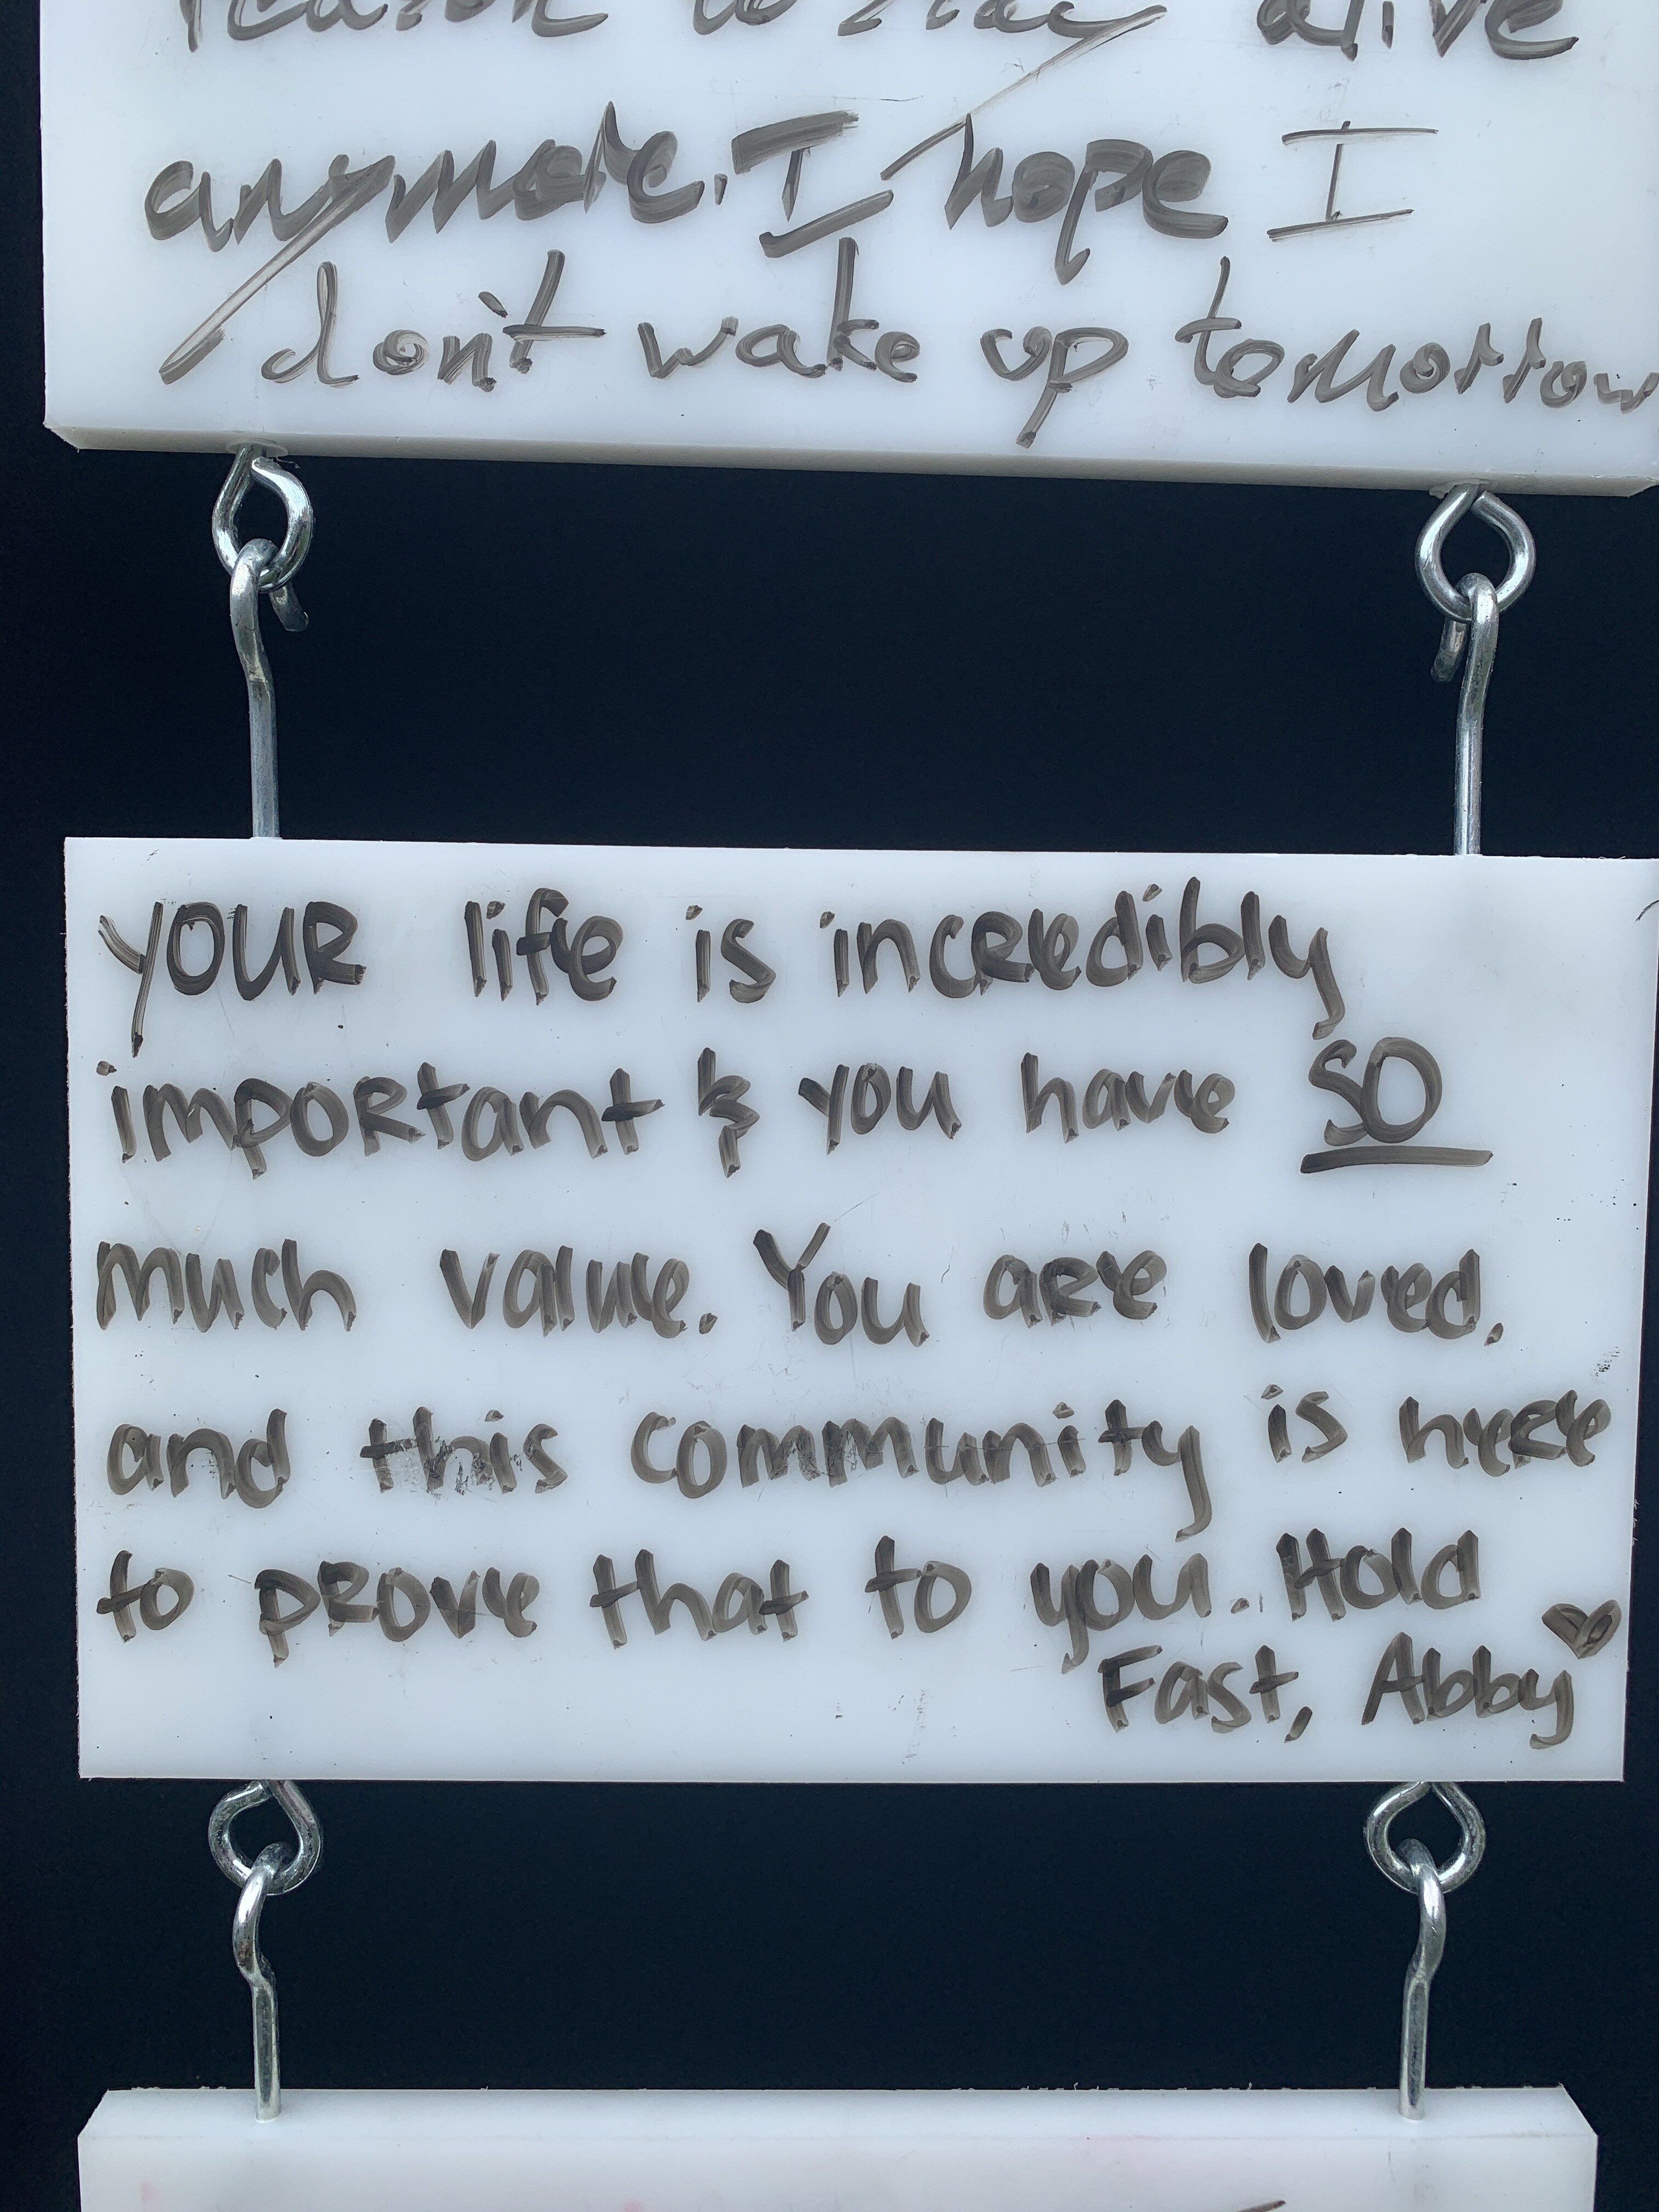 reason to stay alive
anymore. I hope I
don't wake up tomorrow
YOUR life is incredibly
important & you have SO
much value. You are loved.
and this community is here
to prove that to you. Hold
Fast, Abby